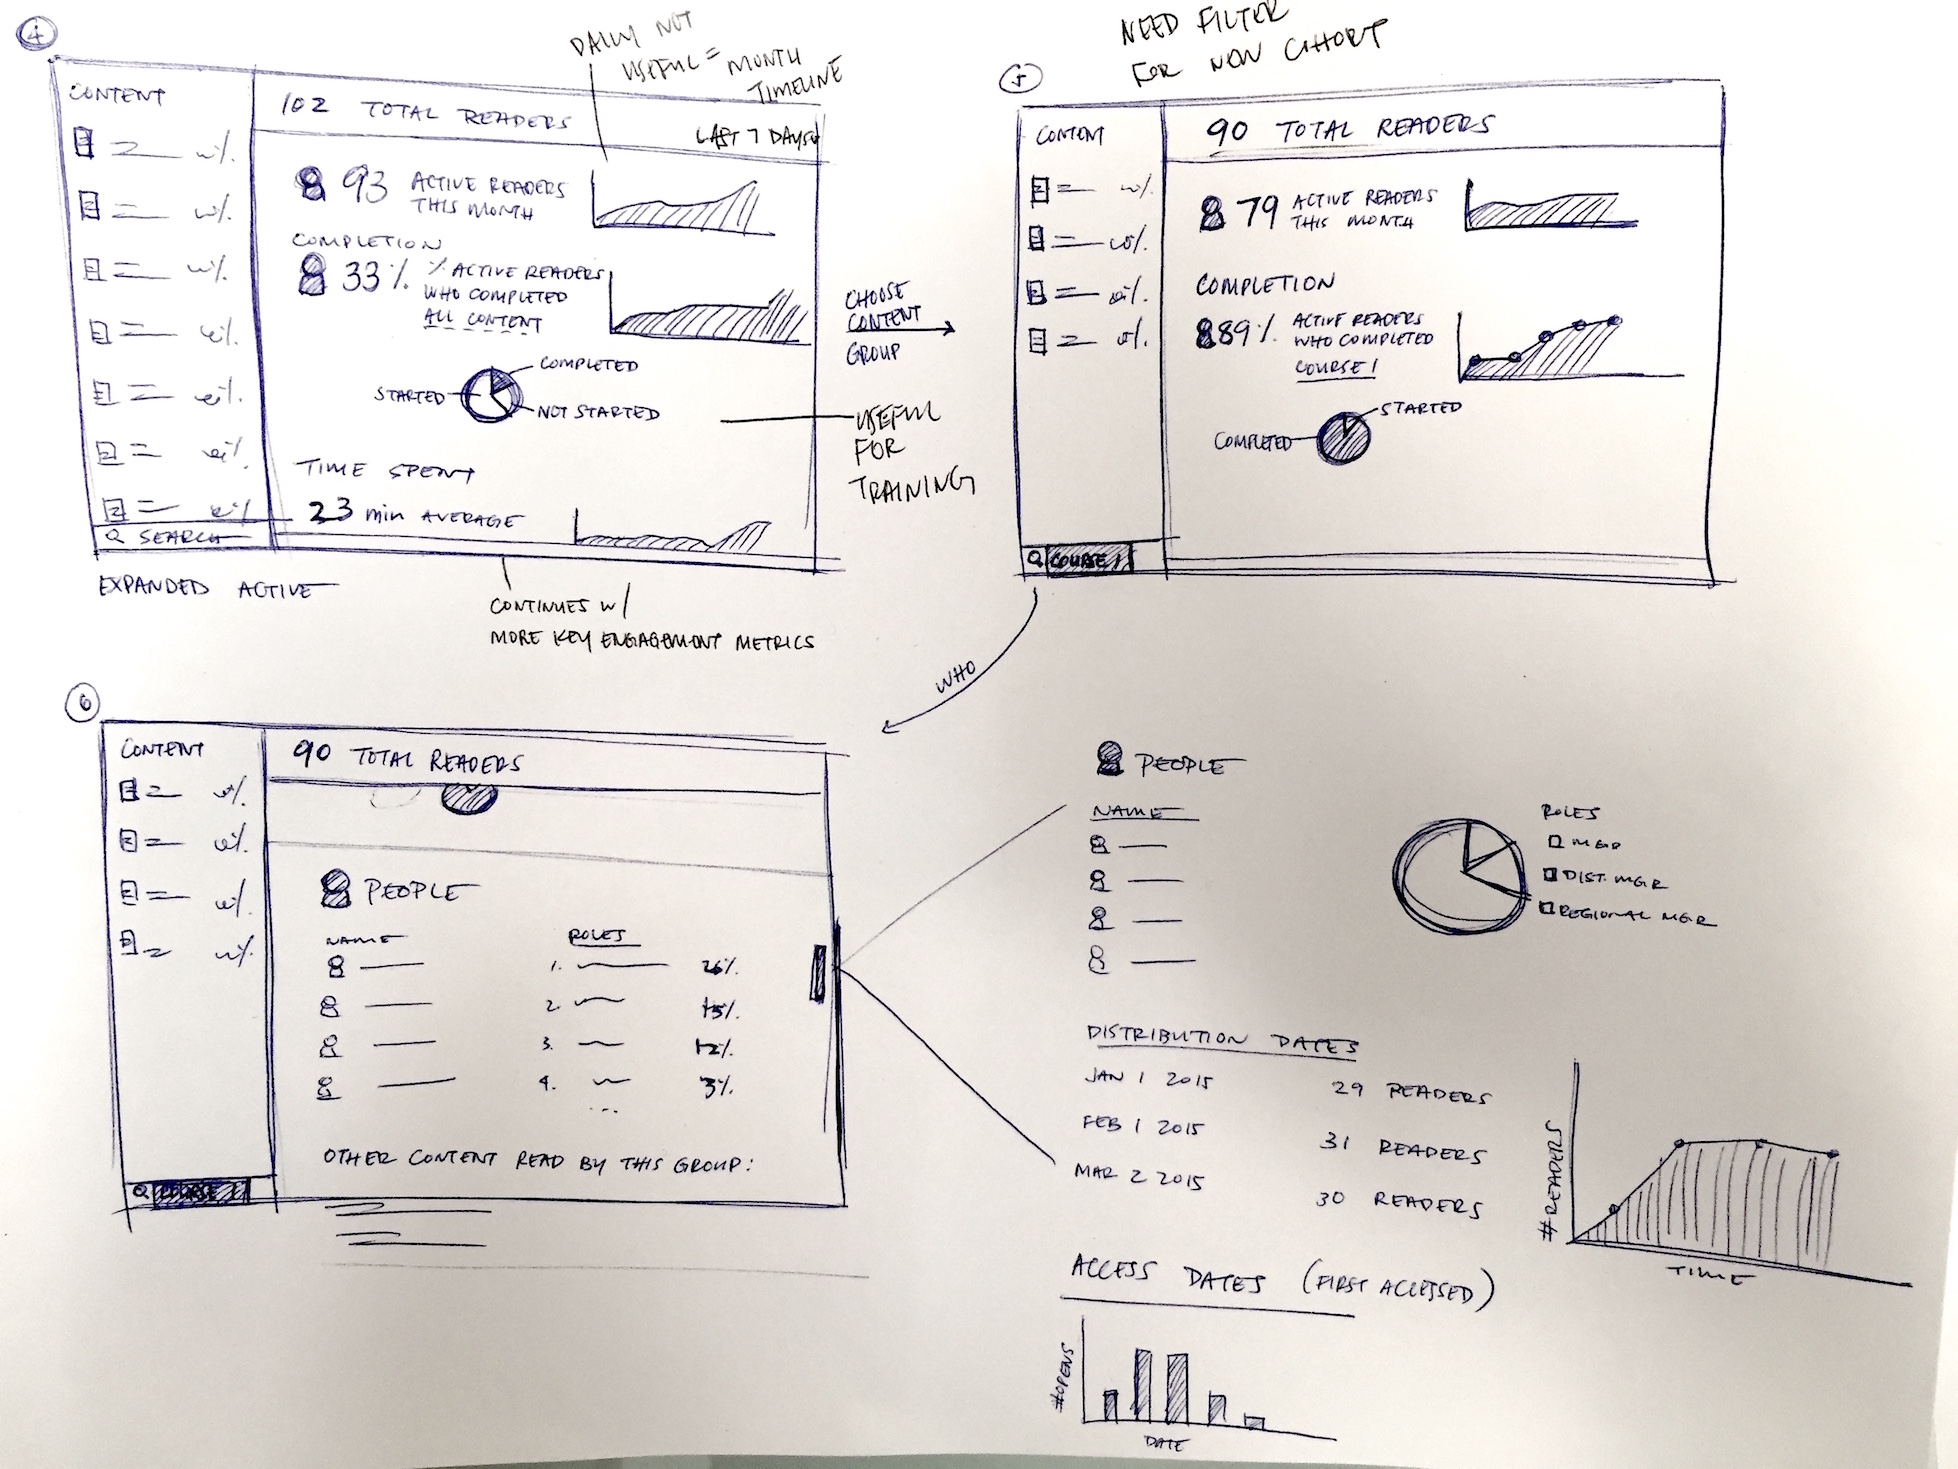 4
DAILY NOT
USEFUL = MONTH
TIMELINE
CONTENT
102 TOTAL READERS
LAST 7 DAYS
93 ACTIVE READERS
THIS MONTH
COMPLETION
33% % ACTIVE READERS
WHO COMPLETED
ALL CONTENT
COMPLETED
STARTED
NOT STARTED
TIME SPENT
23 min AVERAGE
SEARCH
EXPANDED ACTIVE
CONTINUES W/
MORE KEY ENGAGEMENT METRICS
CHOOSE
CONTENT
GROUP
USEFUL
FOR
TRAINING
NEED FILTER
FOR NEW COHORT
5
CONTENT
90 TOTAL READERS
79 ACTIVE READERS
THIS MONTH
COMPLETION
89% ACTIVE READERS
WHO COMPLETED
COURSE 1
STARTED
COMPLETED
COURSE 1
WHO
6
CONTENT
90 TOTAL READERS
PEOPLE
NAME
ROLES
1. 26%
2. 15%
3. 12%
4. 3%
...
OTHER CONTENT READ BY THIS GROUP:
COURSE 1
PEOPLE
NAME
ROLES
MGR
DIST. MGR
REGIONAL MGR
DISTRIBUTION DATES
JAN 1 2015 29 READERS
FEB 1 2015 31 READERS
MAR 2 2015 30 READERS
# READERS
TIME
ACCESS DATES (FIRST ACCESSED)
# OPENS
DATE